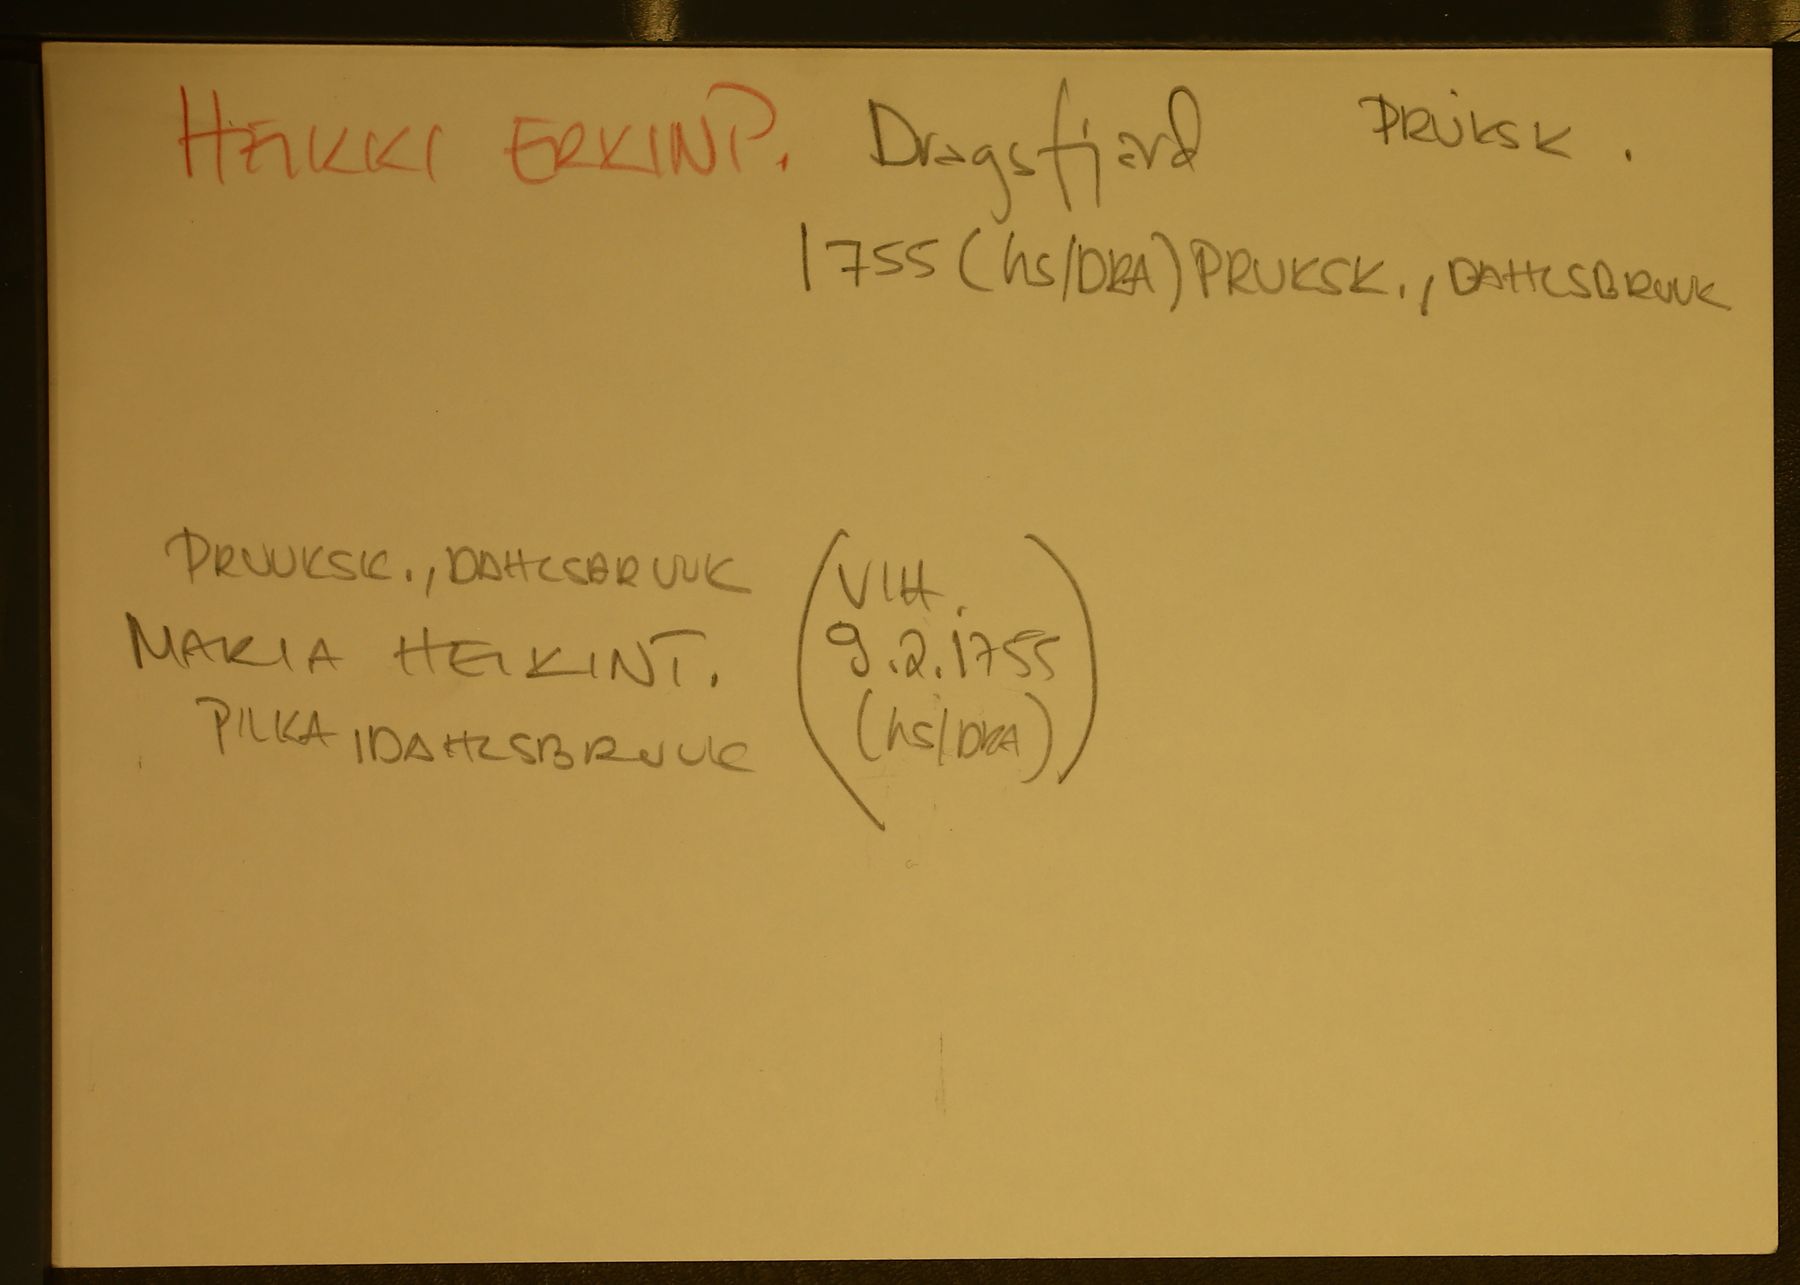 HEIKKI ERKINP. Dragsfjard PRUKSK.
1755 (hs/DRA) PRUKSK., DAHLSBRUUK
PRUUKSK., DAHLSBRUUK
MARIA HEIKINT.
PIIKA, DAHLSBRUUK
(VIH.
9.2.1755
(hs/DRA))